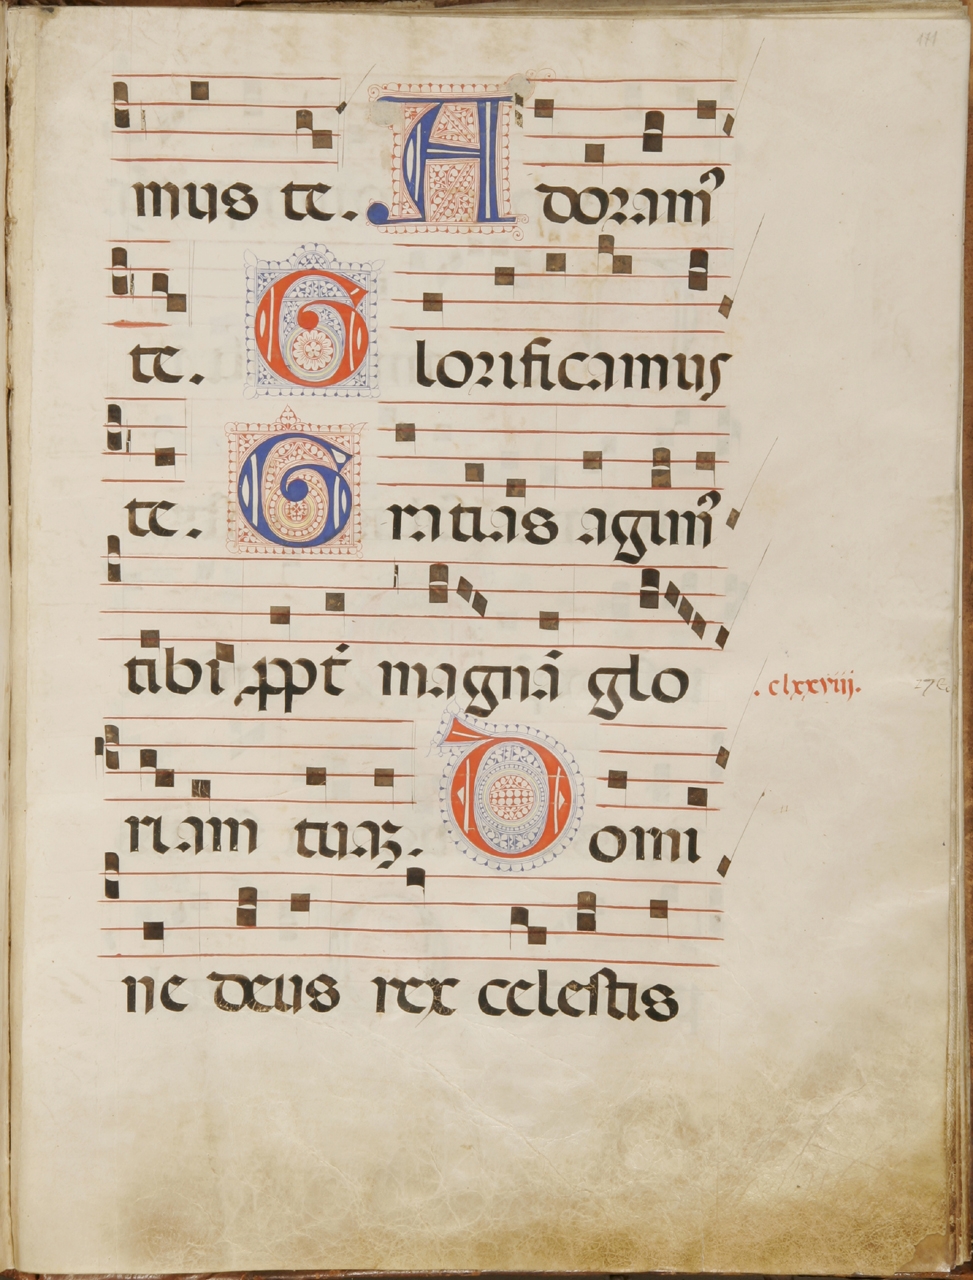 171
mus te. Adoram᷒
te. Glorificamus
te. Gratias agim᷒
tibi ꝓpt̄ magnā glo
.clxxviiij.
riam tuaꝫ. Domi
ne deus rex celestis